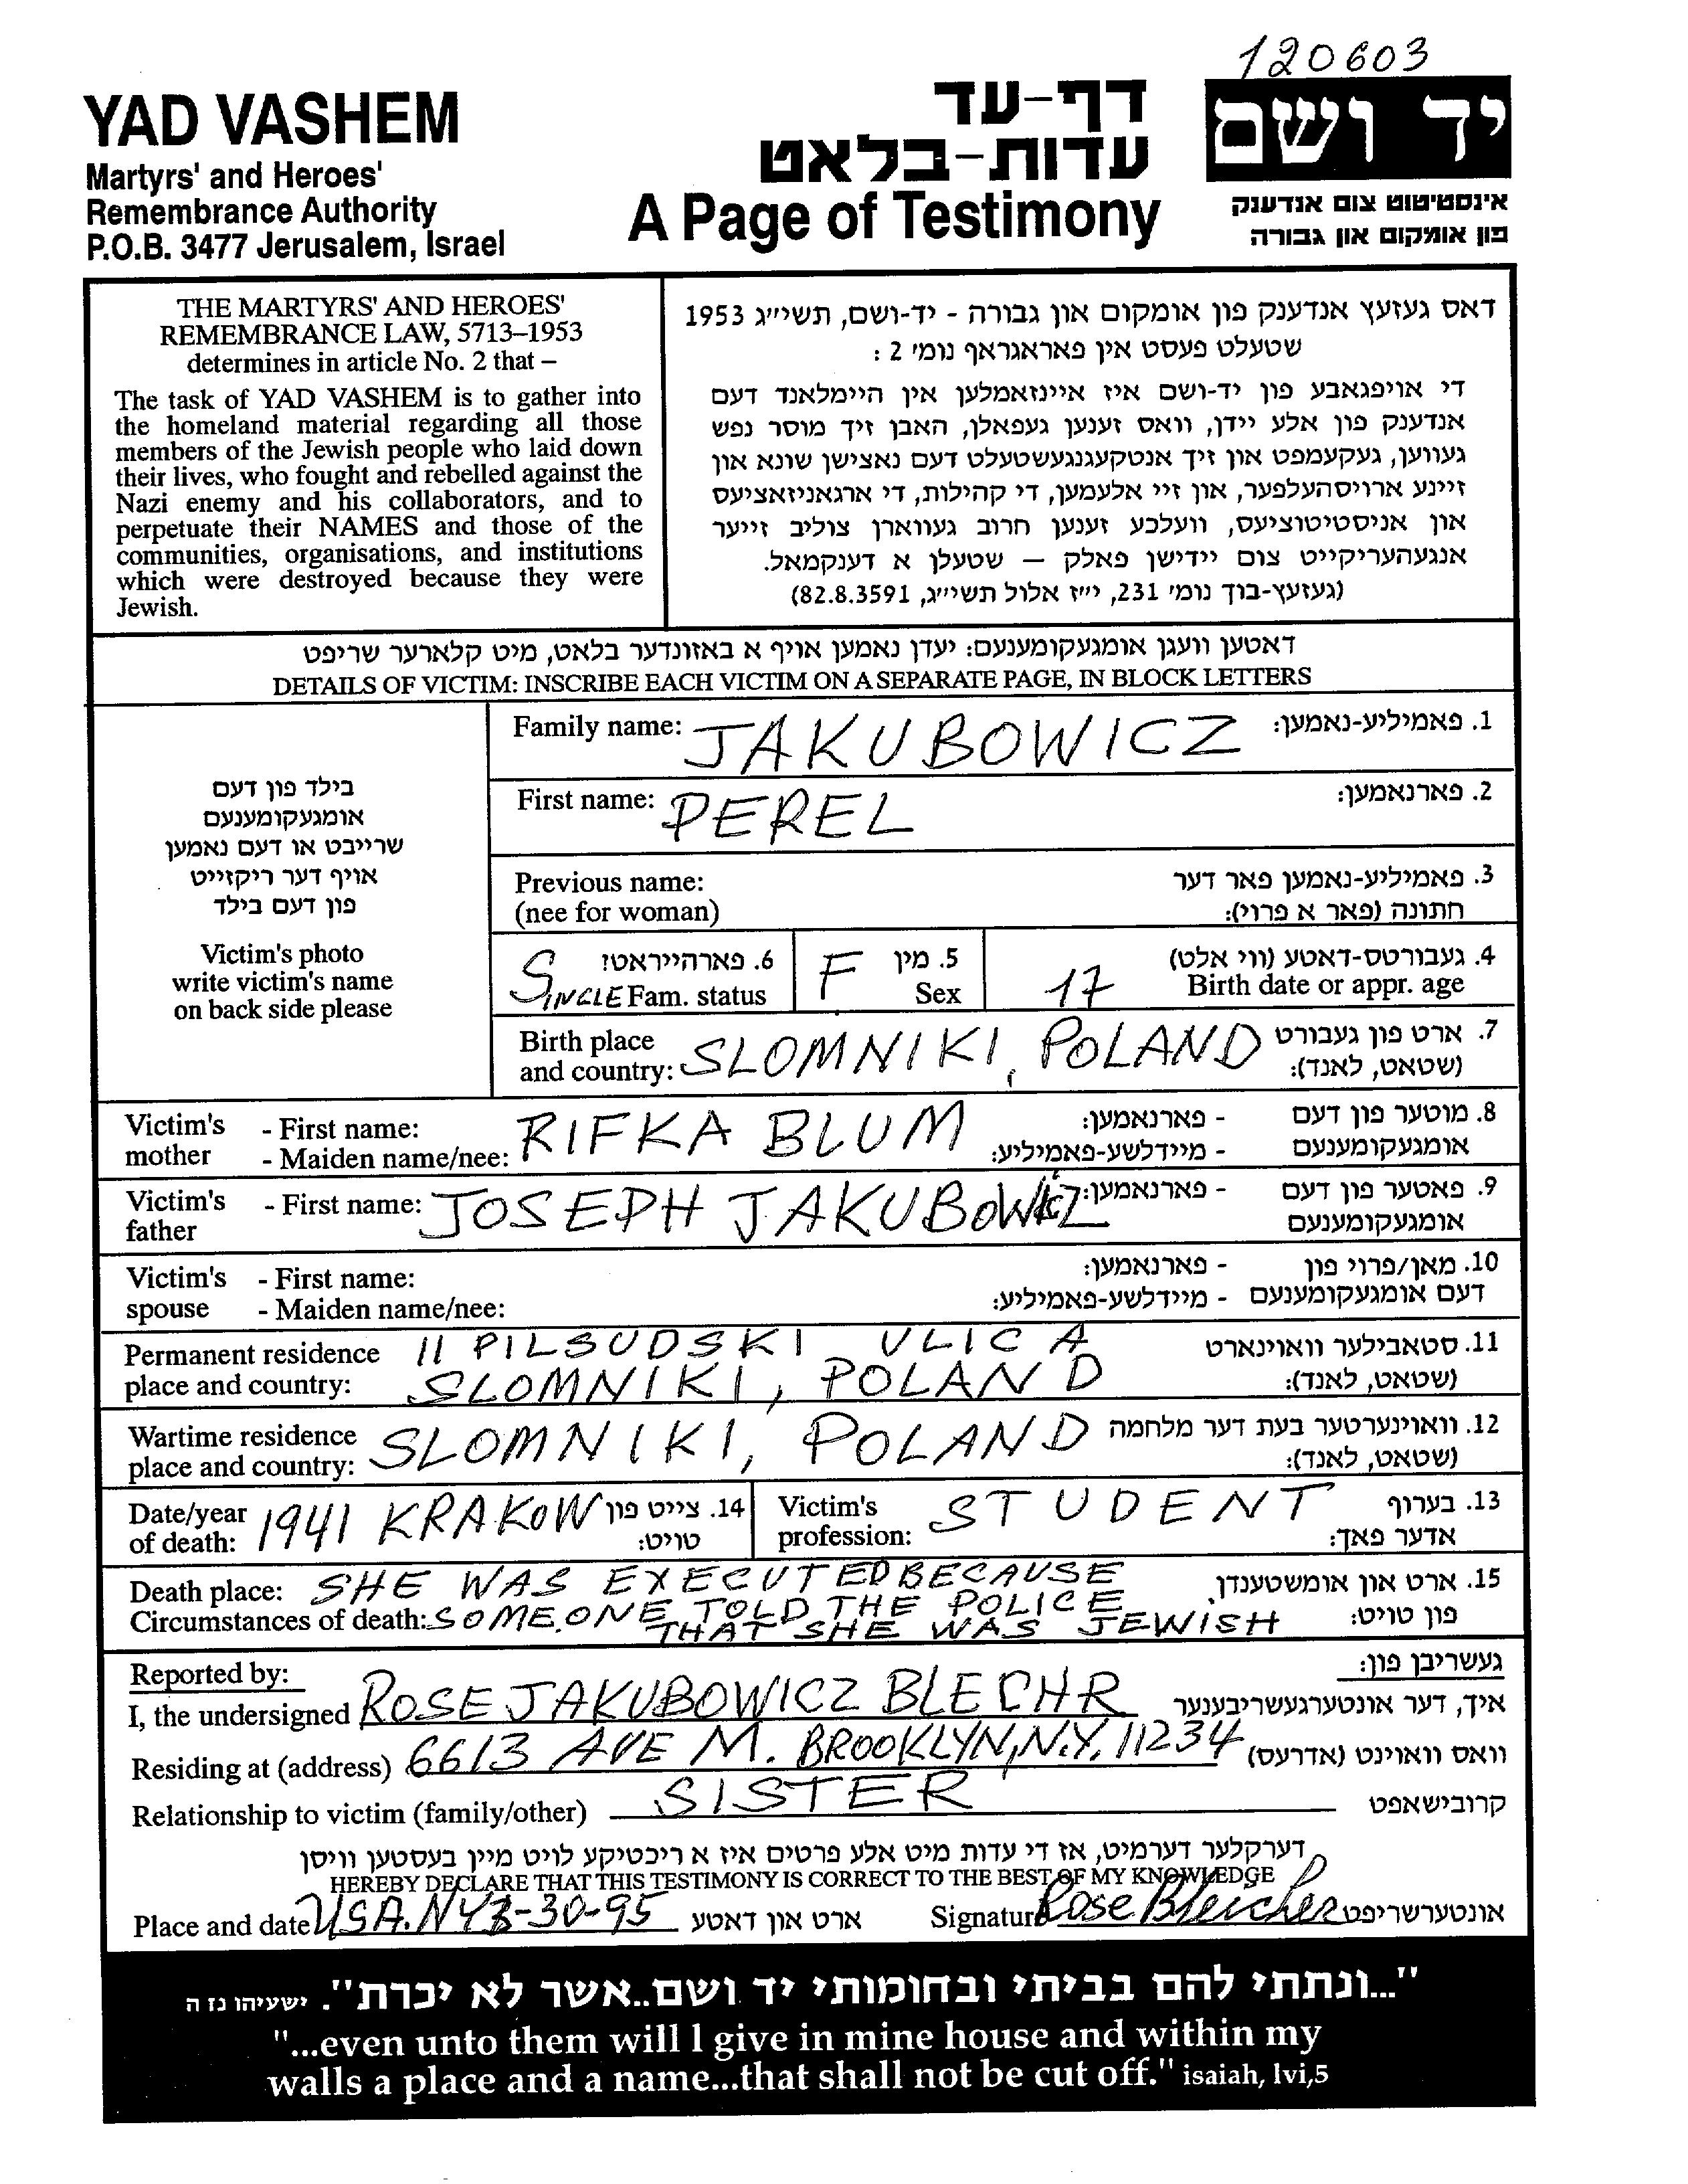 120603
YAD VASHEM
Martyrs' and Heroes'
Remembrance Authority
P.O.B. 3477 Jerusalem, Israel
דף-עד
עדות-בלאט
A Page of Testimony
יד ושם
אינסטיטוט צום אנדענק
פון אומקום און גבורה
THE MARTYRS' AND HEROES'
REMEMBRANCE LAW, 5713–1953
determines in article No. 2 that –
The task of YAD VASHEM is to gather into
the homeland material regarding all those
members of the Jewish people who laid down
their lives, who fought and rebelled against the
Nazi enemy and his collaborators, and to
perpetuate their NAMES and those of the
communities, organisations, and institutions
which were destroyed because they were
Jewish.
דאס געזעץ אנדענק פון אומקום און גבורה - יד-ושם, תשי״ג 1953
שטעלט פעסט אין פאראגראף נומ׳ 2 :
די אויפגאבע פון יד-ושם איז איינזאמלען אין היימלאנד דעם
אנדענק פון אלע יידן, וואס זענען געפאלן, האבן זיך מוסר נפש
געווען, געקעמפט און זיך אנטקעגנגעשטעלט דעם נאצישן שונא און
זיינע ארויסהעלפער, און זיי אלעמען, די קהילות, די ארגאניזאציעס
און אניסטיטוציעס, וועלכע זענען חרוב געווארן צוליב זייער
אנגעהעריקייט צום יידישן פאלק — שטעלן א דענקמאל.
(געזעץ-בוך נומ׳ 231, י״ז אלול תשי״ג, 82.8.3591)
דאטען וועגן אומגעקומענעם: יעדן נאמען אויף א באזונדער בלאט, מיט קלארער שריפט
DETAILS OF VICTIM: INSCRIBE EACH VICTIM ON A SEPARATE PAGE, IN BLOCK LETTERS
בילד פון דעם
אומגעקומענעם
שרייבט או דעם נאמען
אויף דער ריקזייט
פון דעם בילד
Victim's photo
write victim's name
on back side please
Family name: JAKUBOWICZ 1. פאמיליע-נאמען:
First name: PEREL 2. פארנאמען:
Previous name: 3. פאמיליע-נאמען פאר דער
(nee for woman) חתונה (פאר א פרוי):
SINGLE 6. פארהייראט? F 5. מין 17 4. געבורטס-דאטע (ווי אלט)
Fam. status Sex Birth date or appr. age
Birth place SLOMNIKI, POLAND 7. ארט פון געבורט
and country: (שטאט, לאנד):
Victim's - First name: RIFKA BLUM - פארנאמען: 8. מוטער פון דעם
mother - Maiden name/nee: - מיידלשע-פאמיליע: אומגעקומענעם
Victim's - First name: JOSEPH JAKUBOWICZ - פארנאמען: 9. פאטער פון דעם
father אומגעקומענעם
Victim's - First name: - פארנאמען: 10. מאן/פרוי פון
spouse - Maiden name/nee: - מיידלשע-פאמיליע: דעם אומגעקומענעם
Permanent residence 11 PILSUDSKI ULICA 11. סטאבילער וואוינארט
place and country: SLOMNIKI, POLAND (שטאט, לאנד):
Wartime residence SLOMNIKI, POLAND 12. וואוינערטער בעת דער מלחמה
place and country: (שטאט, לאנד):
Date/year 1941 KRAKOW 14. צייט פון Victim's STUDENT 13. בערוף
of death: טויט: profession: אדער פאך:
Death place: SHE WAS EXECUTED BECAUSE 15. ארט און אומשטענדן
Circumstances of death: SOMEONE TOLD THE POLICE פון טויט:
THAT SHE WAS JEWISH
Reported by: געשריבן פון:
I, the undersigned ROSE JAKUBOWICZ BLECHR איך, דער אונטערגעשריבענער
Residing at (address) 6613 AVE M. BROOKLYN, N.Y. 11234 וואס וואוינט (אדרעס)
Relationship to victim (family/other) SISTER קרובישאפט
דערקלער דערמיט, אז די עדות מיט אלע פרטים איז א ריכטיקע לויט מיין בעסטען וויסן
HEREBY DECLARE THAT THIS TESTIMONY IS CORRECT TO THE BEST OF MY KNOWLEDGE
Place and date USA. NY 3-30-95 ארט און דאטע Signature Rose Bleicher אונטערשריפט
"...ונתתי להם בביתי ובחומותי יד ושם..אשר לא יכרת". ישעיהו נז ה
"...even unto them will I give in mine house and within my
walls a place and a name...that shall not be cut off." isaiah, lvi,5